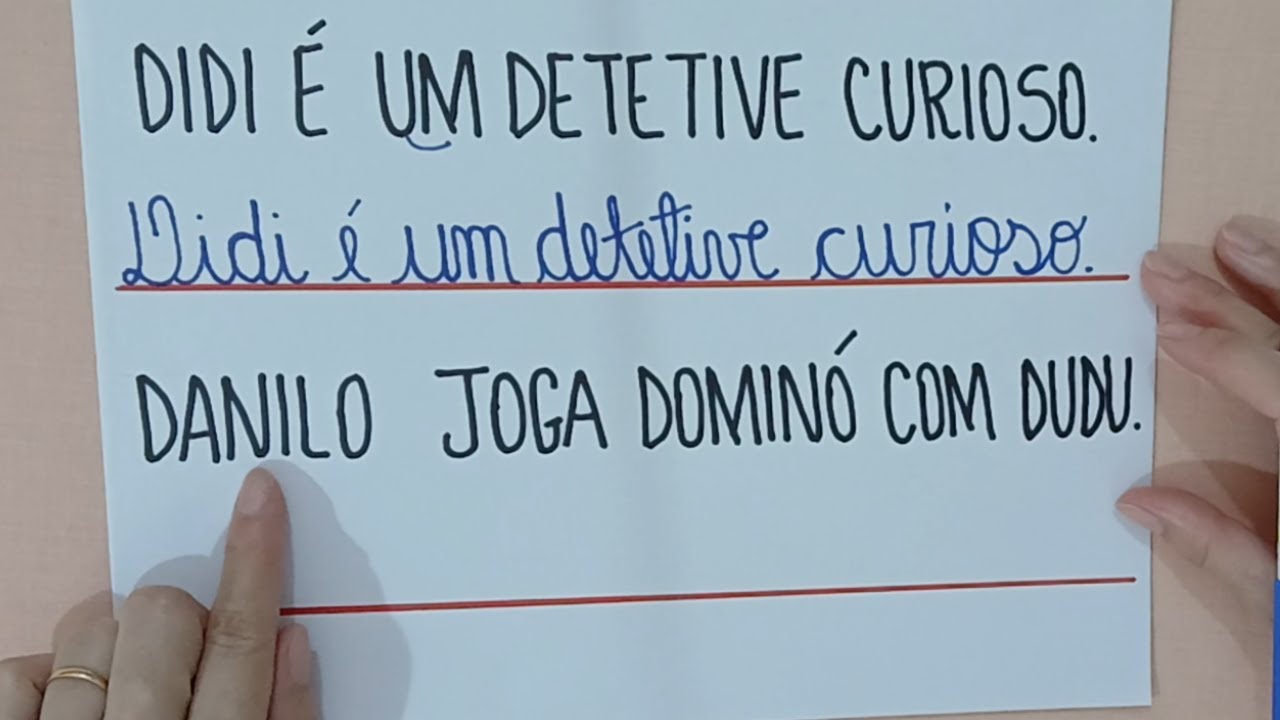 DIDI É UM DETETIVE CURIOSO.
Didi é um detetive curioso.
DANILO JOGA DOMINÓ COM DUDU.